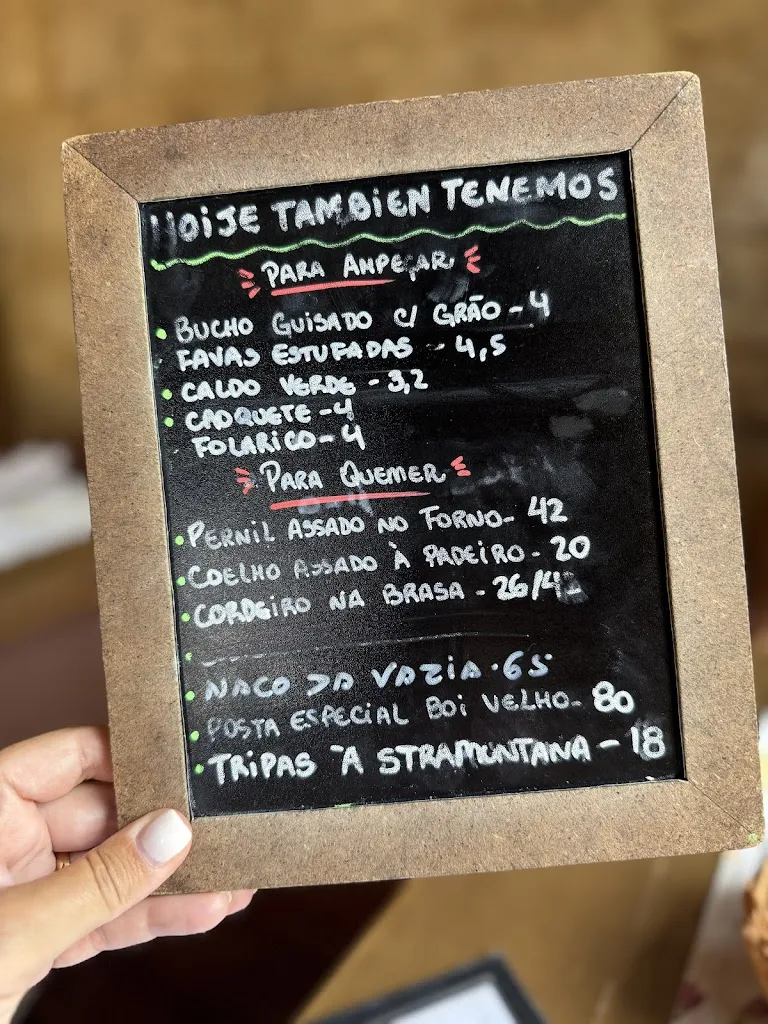 HOIJE TAMBIEN TENEMOS
PARA AMPEÇAR
BUCHO GUISADO C/ GRÃO - 4
FAVAS ESTUFADAS - 4,5
CALDO VERDE - 3,2
CROQUETE - 4
FOLARICO - 4
PARA QUEMER
PERNIL ASSADO NO FORNO - 42
COELHO ASSADO À PADEIRO - 20
CORDEIRO NA BRASA - 26/42
NACO DA VAZIA - 65
POSTA ESPECIAL BOI VELHO - 80
TRIPAS À STRAMONTANA - 18